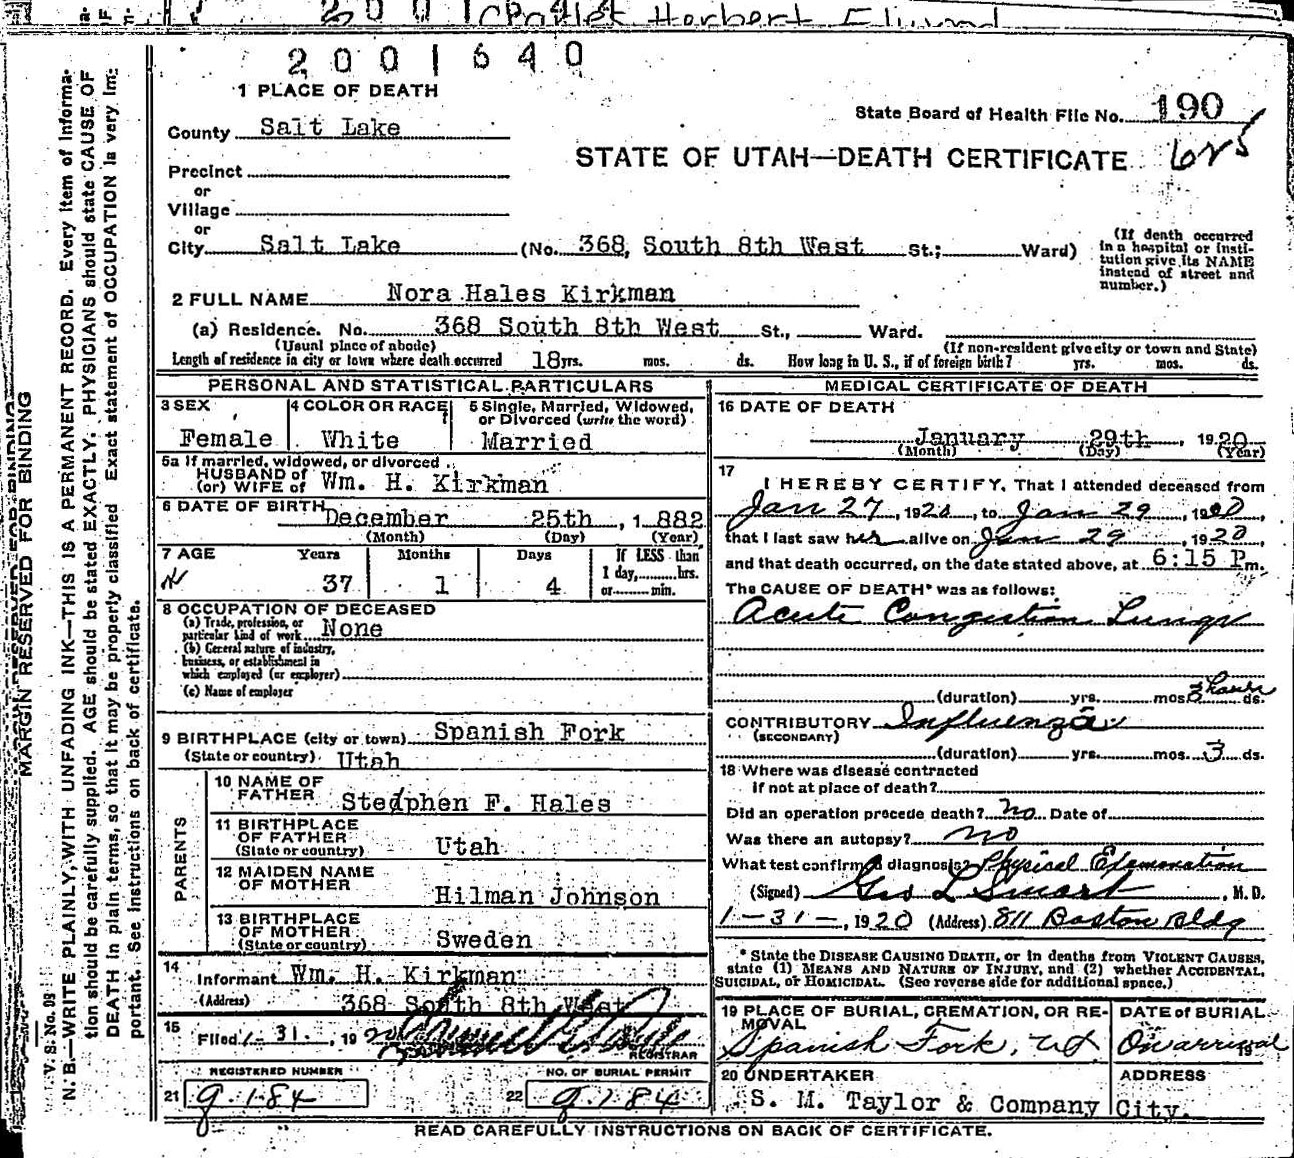 Herbert Elwood
2001640
1 PLACE OF DEATH
State Board of Health File No. 190
County Salt Lake
625
STATE OF UTAH—DEATH CERTIFICATE
Precinct
or
Village
or
City Salt Lake (No. 368, South 8th West St.; Ward)
(If death occurred in a hospital or institution give its NAME instead of street and number.)
2 FULL NAME Nora Hales Kirkman
(a) Residence. No. 368 South 8th West St., Ward.
(Usual place of abode) (If non-resident give city or town and State)
Length of residence in city or town where death occurred 18 yrs. mos. ds. How long in U. S., if of foreign birth? yrs. mos. ds.
PERSONAL AND STATISTICAL PARTICULARS
3 SEX
Female
4 COLOR OR RACE
White
5 Single, Married, Widowed, or Divorced (write the word)
Married
5a If married, widowed, or divorced
HUSBAND of
(or) WIFE of Wm. H. Kirkman
6 DATE OF BIRTH December 25th, 1882
(Month) (Day) (Year)
7 AGE Years Months Days If LESS than
1 day, hrs.
or min.
37 1 4
8 OCCUPATION OF DECEASED
(a) Trade, profession, or
particular kind of work None
(b) General nature of industry,
business, or establishment in
which employed (or employer)
(c) Name of employer
9 BIRTHPLACE (city or town) Spanish Fork
(State or country) Utah
PARENTS
10 NAME OF
FATHER Stedphen F. Hales
11 BIRTHPLACE
OF FATHER
(State or country) Utah
12 MAIDEN NAME
OF MOTHER Hilman Johnson
13 BIRTHPLACE
OF MOTHER
(State or country) Sweden
14
Informant Wm. H. Kirkman
(Address) 368 South 8th West
15
Filed 1-31., 1920
REGISTRAR
REGISTERED NUMBER NO. OF BURIAL PERMIT
21 g.184 22 g.184
MEDICAL CERTIFICATE OF DEATH
16 DATE OF DEATH
January 29th, 1920
(Month) (Day) (Year)
17
I HEREBY CERTIFY, That I attended deceased from
Jan 27, 1920, to Jan 29, 1920,
that I last saw her alive on Jan 29, 1920,
and that death occurred, on the date stated above, at 6:15 P m.
The CAUSE OF DEATH* was as follows:
Acute Congestion Lungs
(duration) yrs. mos. 3 hours ds.
CONTRIBUTORY Influenza
(SECONDARY)
(duration) yrs. mos. 3 ds.
18 Where was disease contracted
if not at place of death?
Did an operation precede death? no Date of
Was there an autopsy? no
What test confirmed diagnosis? Physical Examination
(Signed) Geo L Smart, M. D.
1-31-, 1920 (Address) 811 Boston Bldg
* State the DISEASE CAUSING DEATH, or in deaths from VIOLENT CAUSES,
state (1) MEANS AND NATURE OF INJURY, and (2) whether ACCIDENTAL,
SUICIDAL, or HOMICIDAL. (See reverse side for additional space.)
19 PLACE OF BURIAL, CREMATION, OR REMOVAL
Spanish Fork, Ut
DATE of BURIAL
On arrival 19
20 UNDERTAKER
S. M. Taylor & Company
ADDRESS
City.
READ CAREFULLY INSTRUCTIONS ON BACK OF CERTIFICATE.
MARGIN RESERVED FOR BINDING
V. S. No. 03
N. B.—WRITE PLAINLY, WITH UNFADING INK—THIS IS A PERMANENT RECORD. Every item of informa-
tion should be carefully supplied. AGE should be stated EXACTLY. PHYSICIANS should state CAUSE OF
DEATH in plain terms, so that it may be properly classified. Exact statement of OCCUPATION is very im-
portant. See instructions on back of certificate.